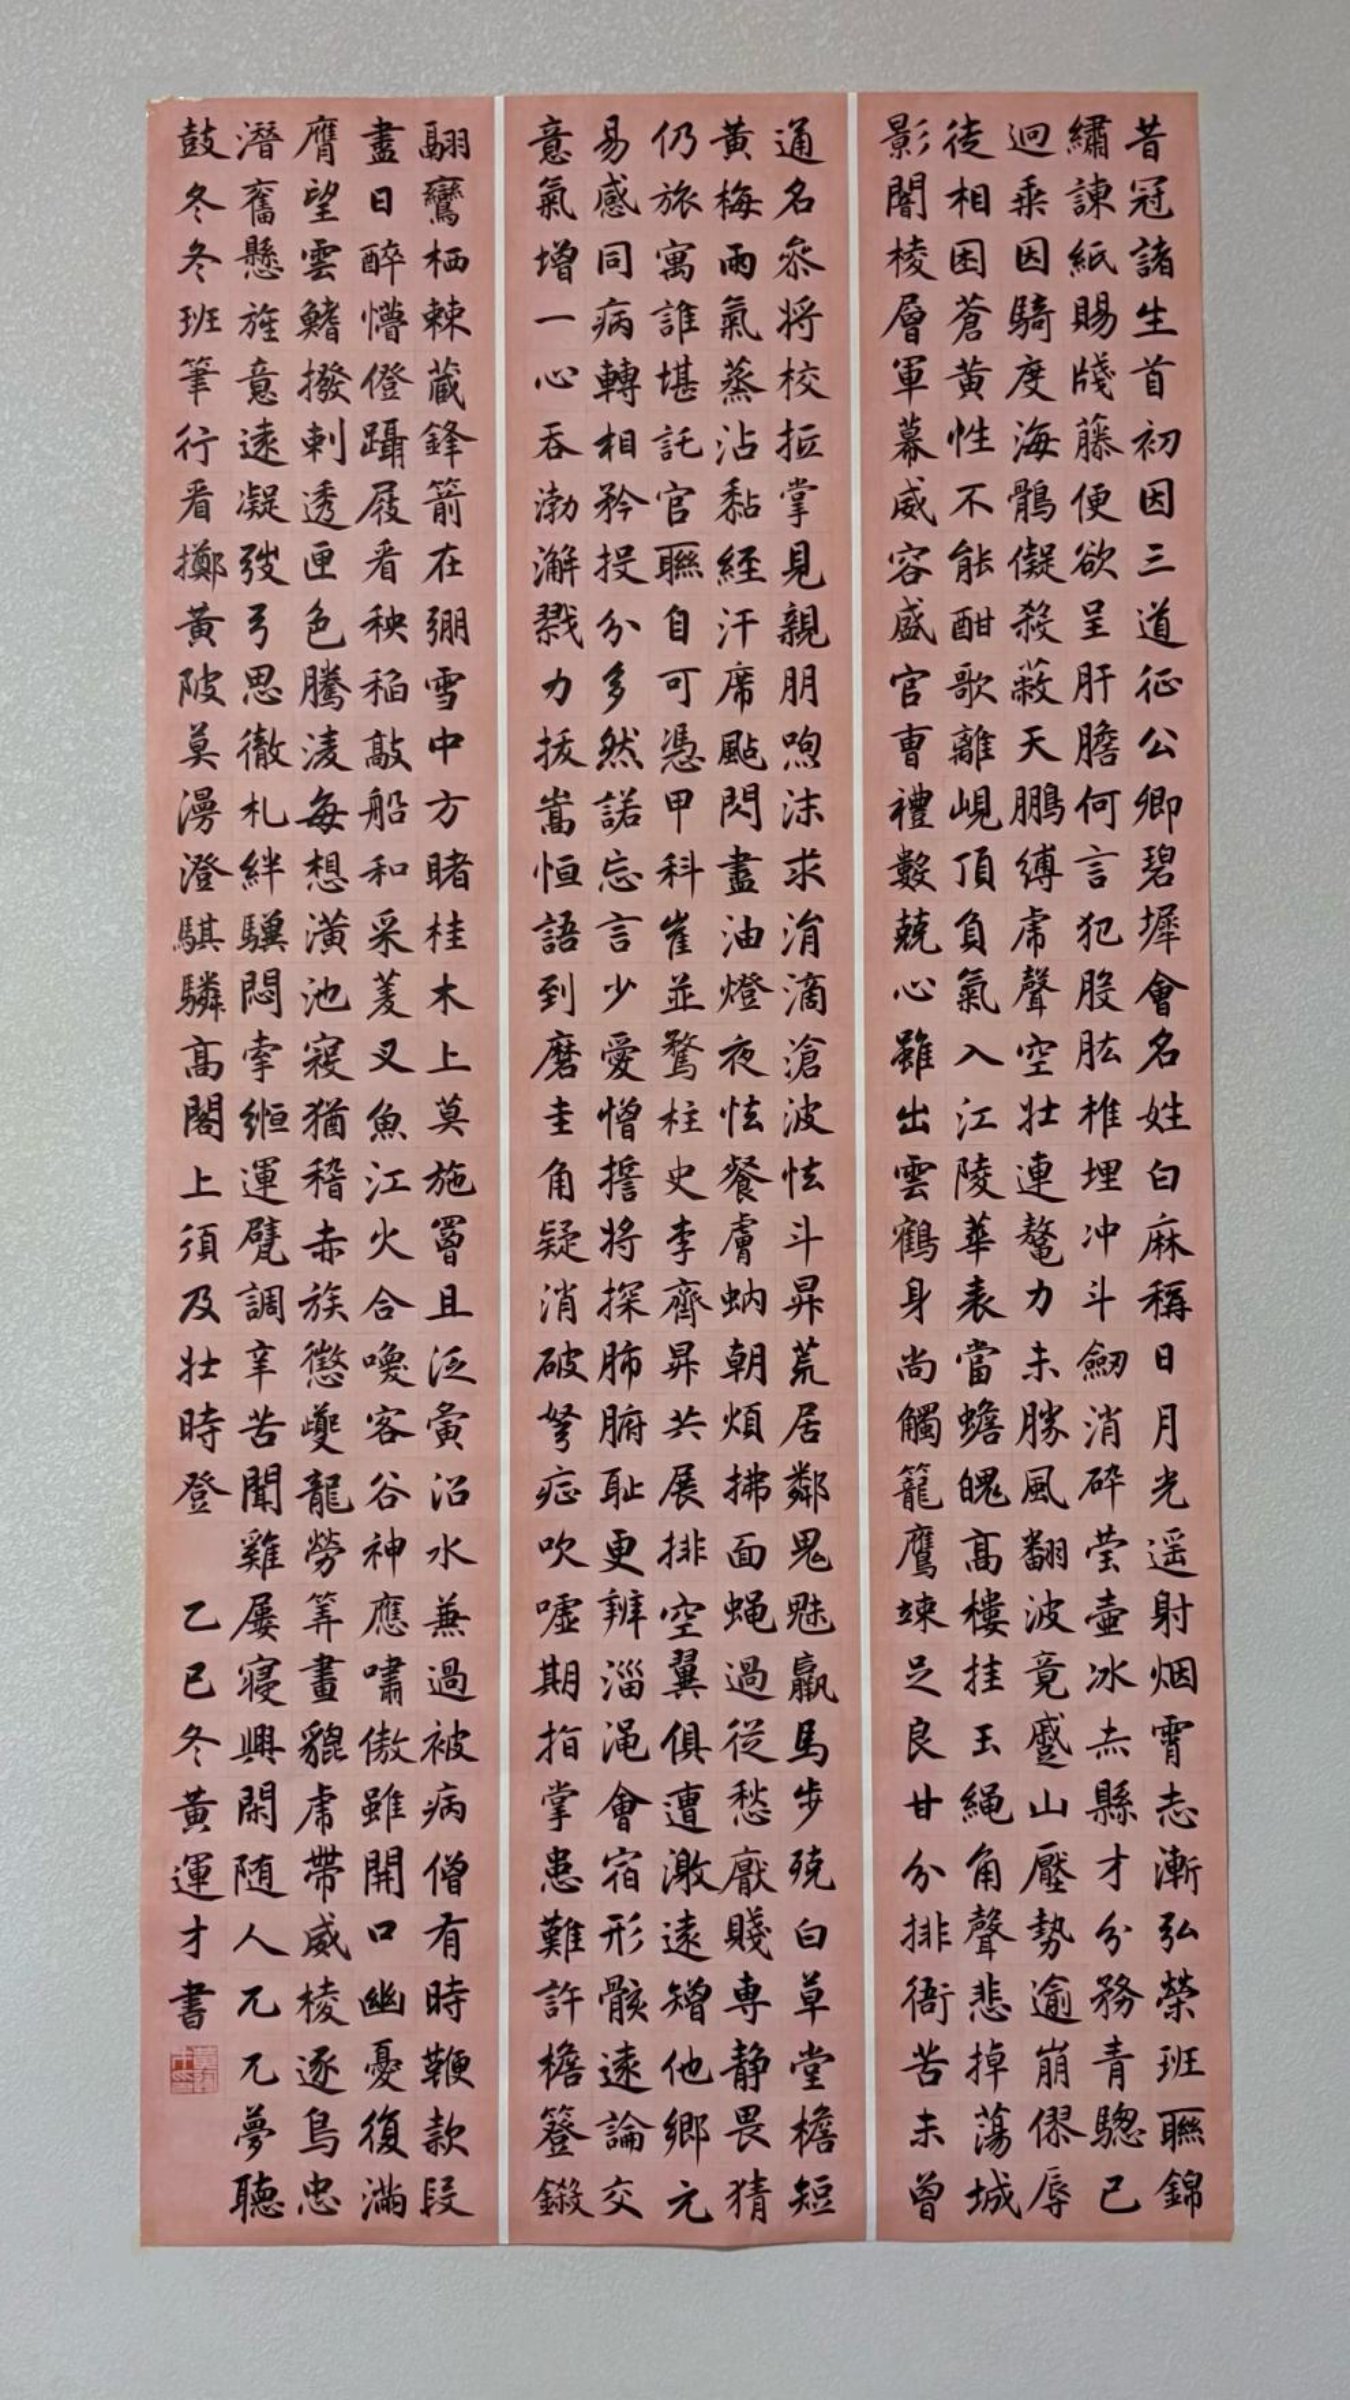 昔冠諸生首初因三道征公卿碧墀會名姓白麻稱日月光遥射烟霄志漸弘榮班聯錦
繡諫紙賜牋藤便欲呈肝膽何言犯股肱椎埋冲斗劒消碎莹壷冰赤縣才分務青驄已
迥乘因騎度海鶻儗殺蔽天鵬縛虎聲空壮連鼇力未勝風翻波竟蹙山壓勢逾崩僇辱
徒相困蒼黃性不能酣歌離峴頂負氣入江陵華表當蟾魄高樓挂玉繩角聲悲掉蕩城
影闇棱層軍幕威容盛官曹禮數兢心雖出雲鶴身尚觸籠鷹竦足良甘分排衙苦未曾
通名參將校抵掌見親朋喣沫求涓滴滄波怯斗昇荒居鄰鬼魅羸馬步殑白草堂檐短
黃梅雨氣蒸沾黏經汗席颭閃盡油燈夜怯餐膚蚋朝煩拂面蝇過從愁厭賤専静畏猜
仍旅寓誰堪託官聯自可憑甲科崔並鶩柱史李齊昇共展排空翼俱遭激遠矰他鄉元
易感同病轉相矜投分多然諾忘言少愛憎誓將探肺腑耻更辨淄渑會宿形骸遠論交
意氣增一心吞渤澥戮力拔嵩恒語到磨圭角疑消破弩症吹嘘期指掌患難許檐簦鎩
翮鸞栖棘藏鋒箭在弸雪中方睹桂木上莫施罾且泛夤沿水兼過被病僧有時鞭款段
盡日醉懵僜躡屐看秧稻敲船和采菱叉魚江火合喚客谷神應嘯傲雖開口幽憂復滿
膺望雲鰭撥剌透匣色騰淩每想潢池寇猶稽赤族懲夔龍勞筭畫貔虎帶威棱逐鳥忠
潛奮懸旌意遠凝弢弓思徹札絆驥悶牽縆運甓調辛苦聞雞屢寝興閑随人兀兀夢聽
鼓冬冬班筆行看擲黃陂莫漫澄騏驎高閣上須及壮時登 乙巳冬黃運才書